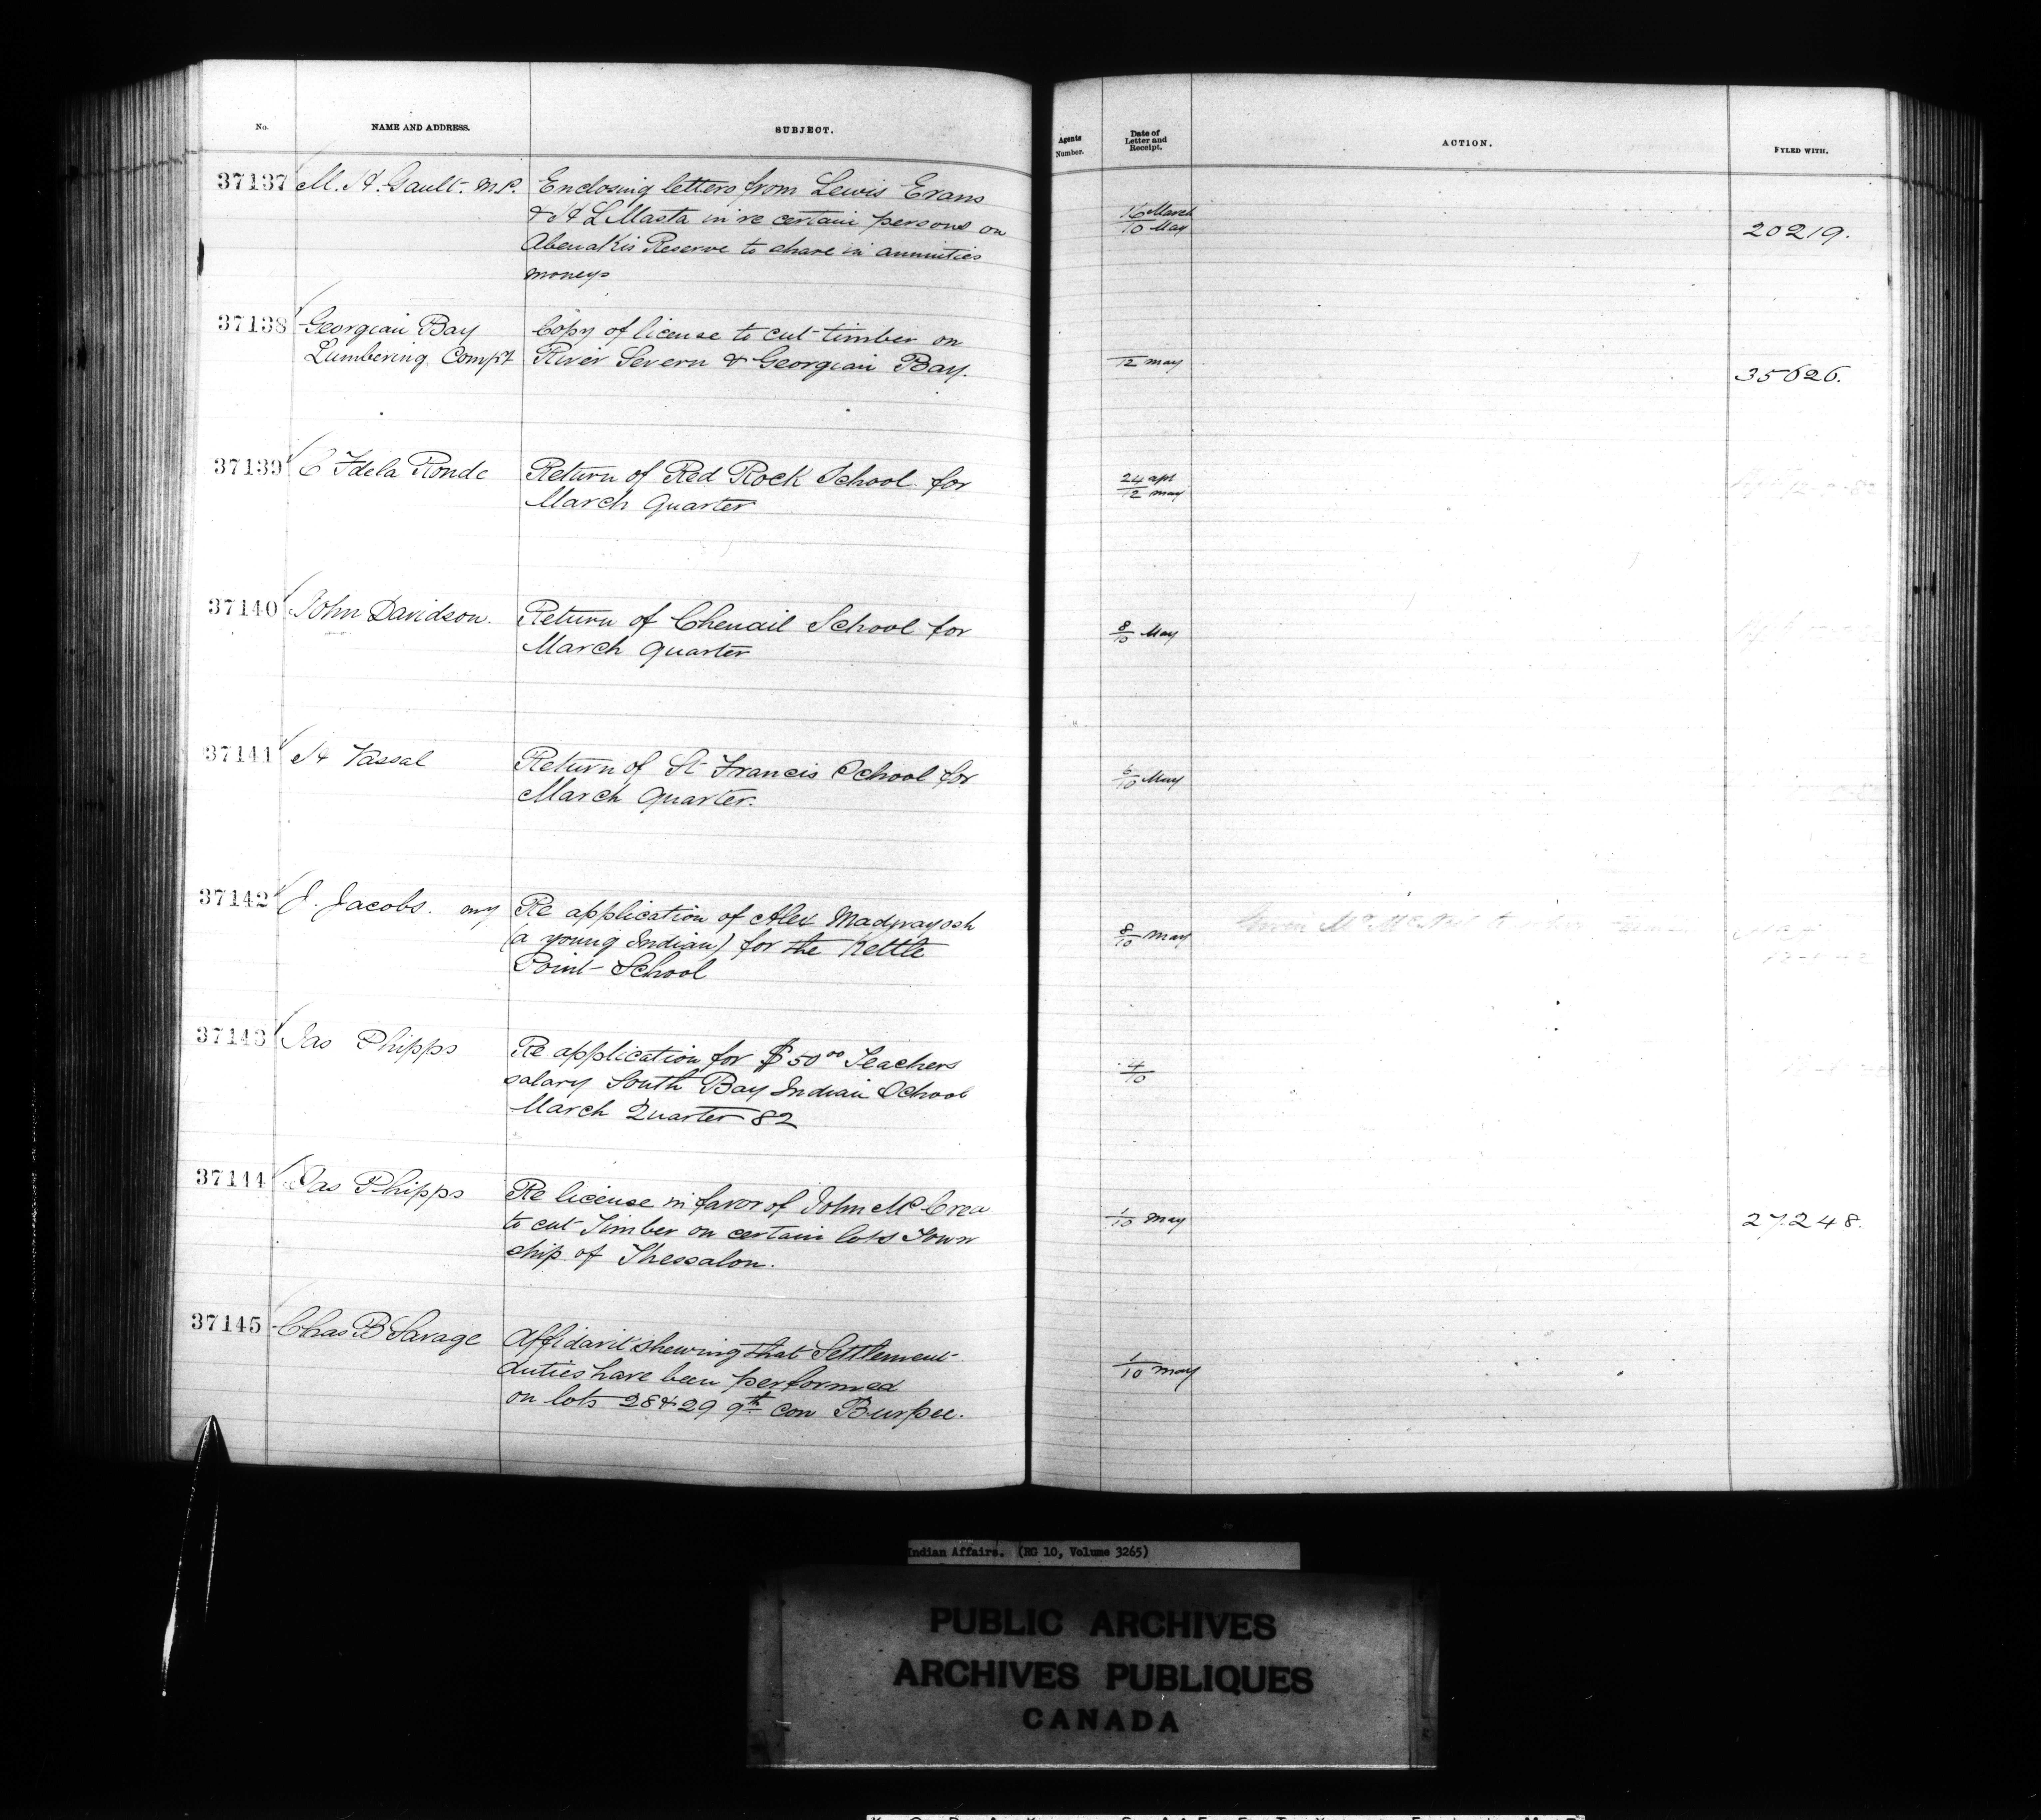 No.
NAME AND ADDRESS.
SUBJECT.
Agents
Number.
Date of
Letter and
Receipt.
ACTION.
FYLED WITH.
37137
M. H. Gault. M.P.
Enclosing letters from Lewis Evans
& H L Masta in re certain persons on
Abenakis Reserve to share in annuities
moneys
16 March
10 May
20219.
37138
Georgian Bay
Lumbering Compy
Copy of license to cut timber on
River Severn & Georgian Bay.
12 May
35626.
37139
C F de la Ronde
Return of Red Rock School for
March Quarter
24 apl
12 may
37140
John Davidson.
Return of Chenail School for
March Quarter
8
10 May
37141
H Vassal
Return of St Francis School for
March Quarter.
6
10 May
37142
J. Jacobs.
Re application of Alex Madwayosh
(a young Indian) for the Kettle
Point School
8
10 May
37143
Jas Phipps
Re application for $50 00 Teachers
salary South Bay Indian School
March Quarter 82
4
10
37144
Jas Phipps
Re license in favor of John McCrea
to cut Timber on certain lots Town
ship of Thessalon.
1
10 May
27248.
37145
Chas B Savage
Affidavit shewing that Settlement
duties have been performed
on lots 28 & 29 9th con Burpee.
1
10 May
Indian Affairs. (RG 10, Volume 3265)
PUBLIC ARCHIVES
ARCHIVES PUBLIQUES
CANADA